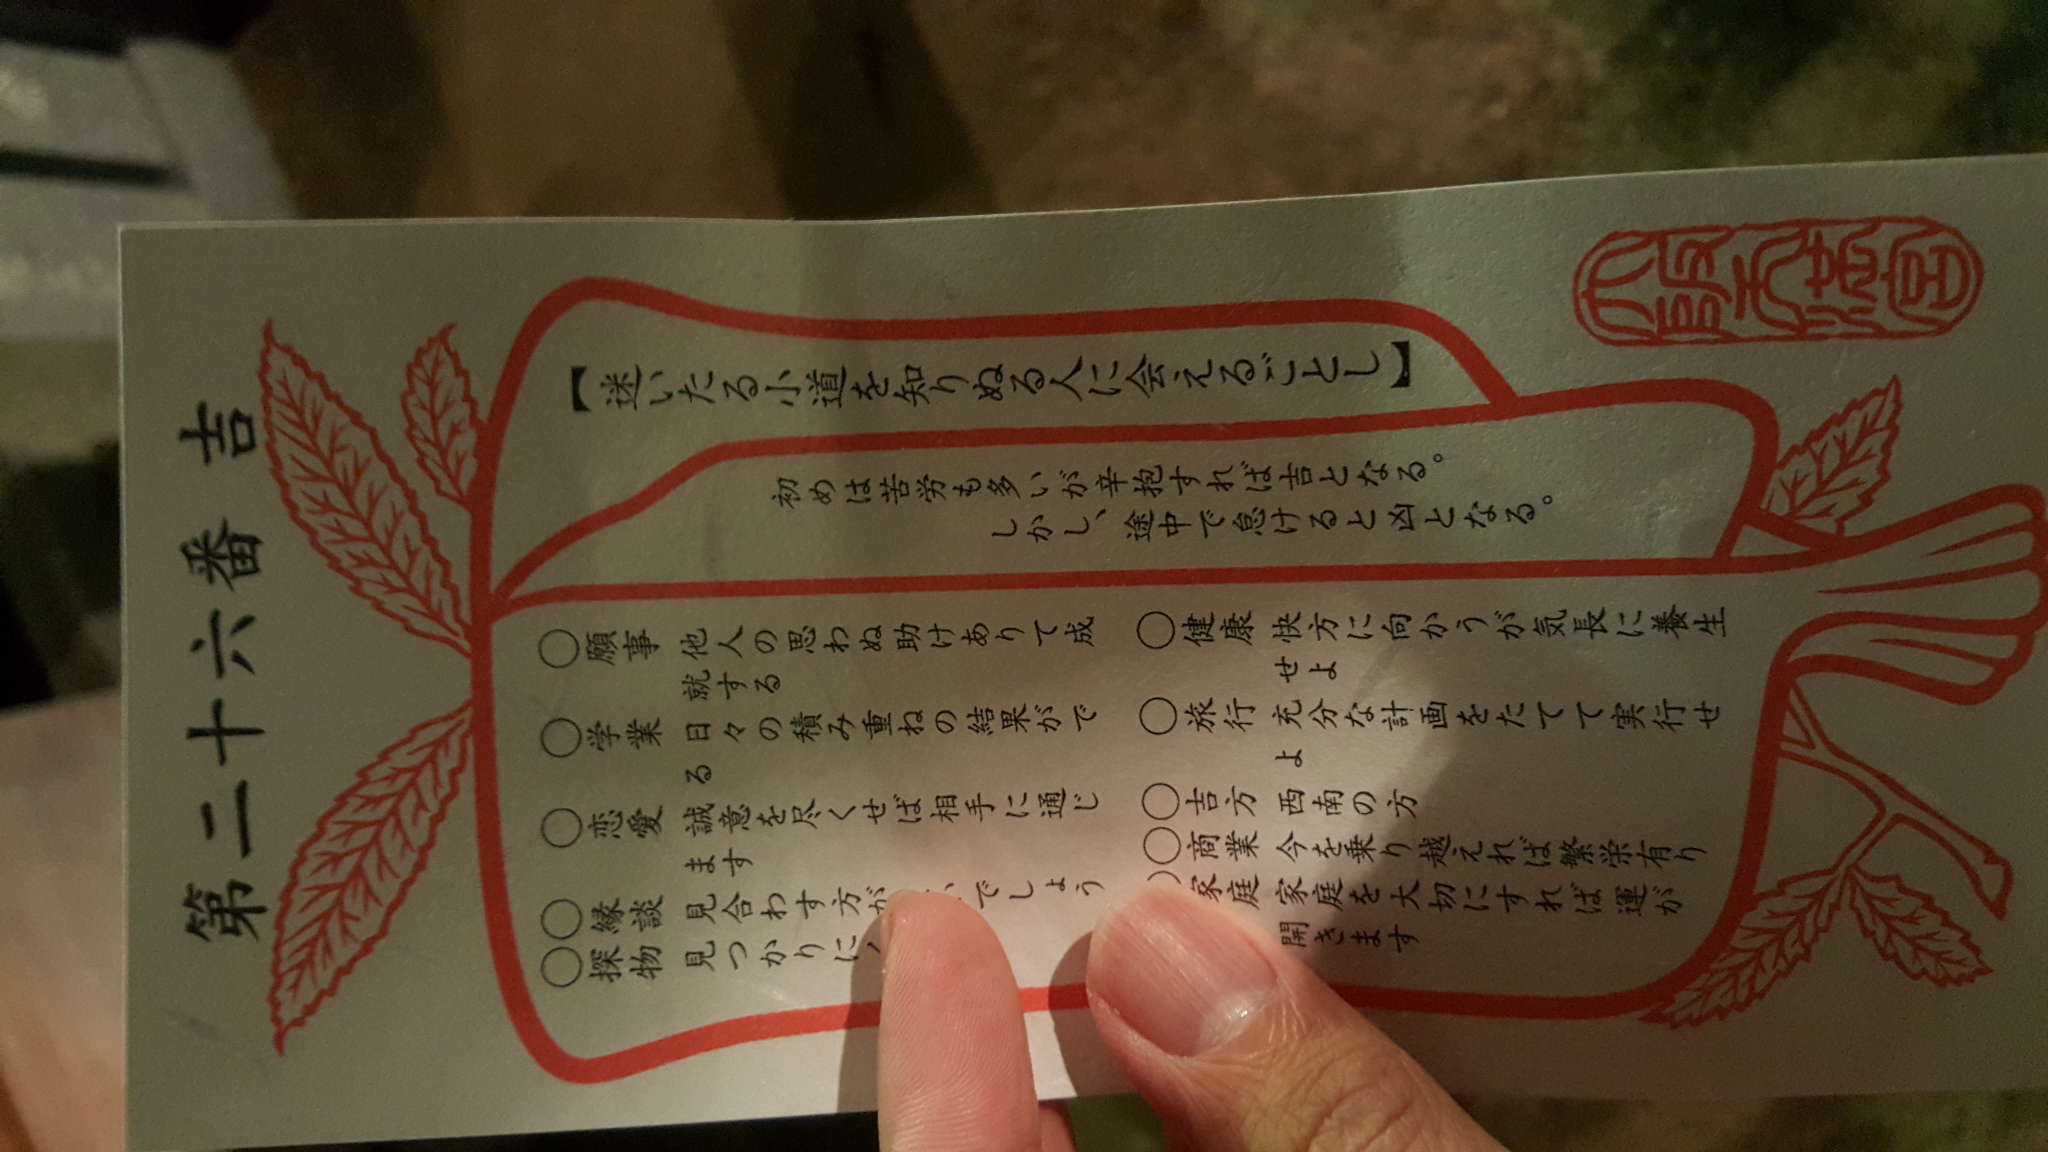 第二十六番 吉
大阪天満宮
【迷いたる小道を知りぬる人に会えるごとし】
初めは苦労も多いが辛抱すれば吉となる。
しかし、途中で怠けると凶となる。
〇願事 他人の思わぬ助けありて成
就する
〇学業 日々の積み重ねの結果がで
る
〇恋愛 誠意を尽くせば相手に通じ
ます
〇縁談 見合わす方が でしょう
〇探物 見つかりに
〇健康 快方に向かうが気長に養生
せよ
〇旅行 充分な計画をたてて実行せ
よ
〇吉方 西南の方
〇商業 今を乗り越えれば繁栄有り
〇家庭 家庭を大切にすれば運が
開きます